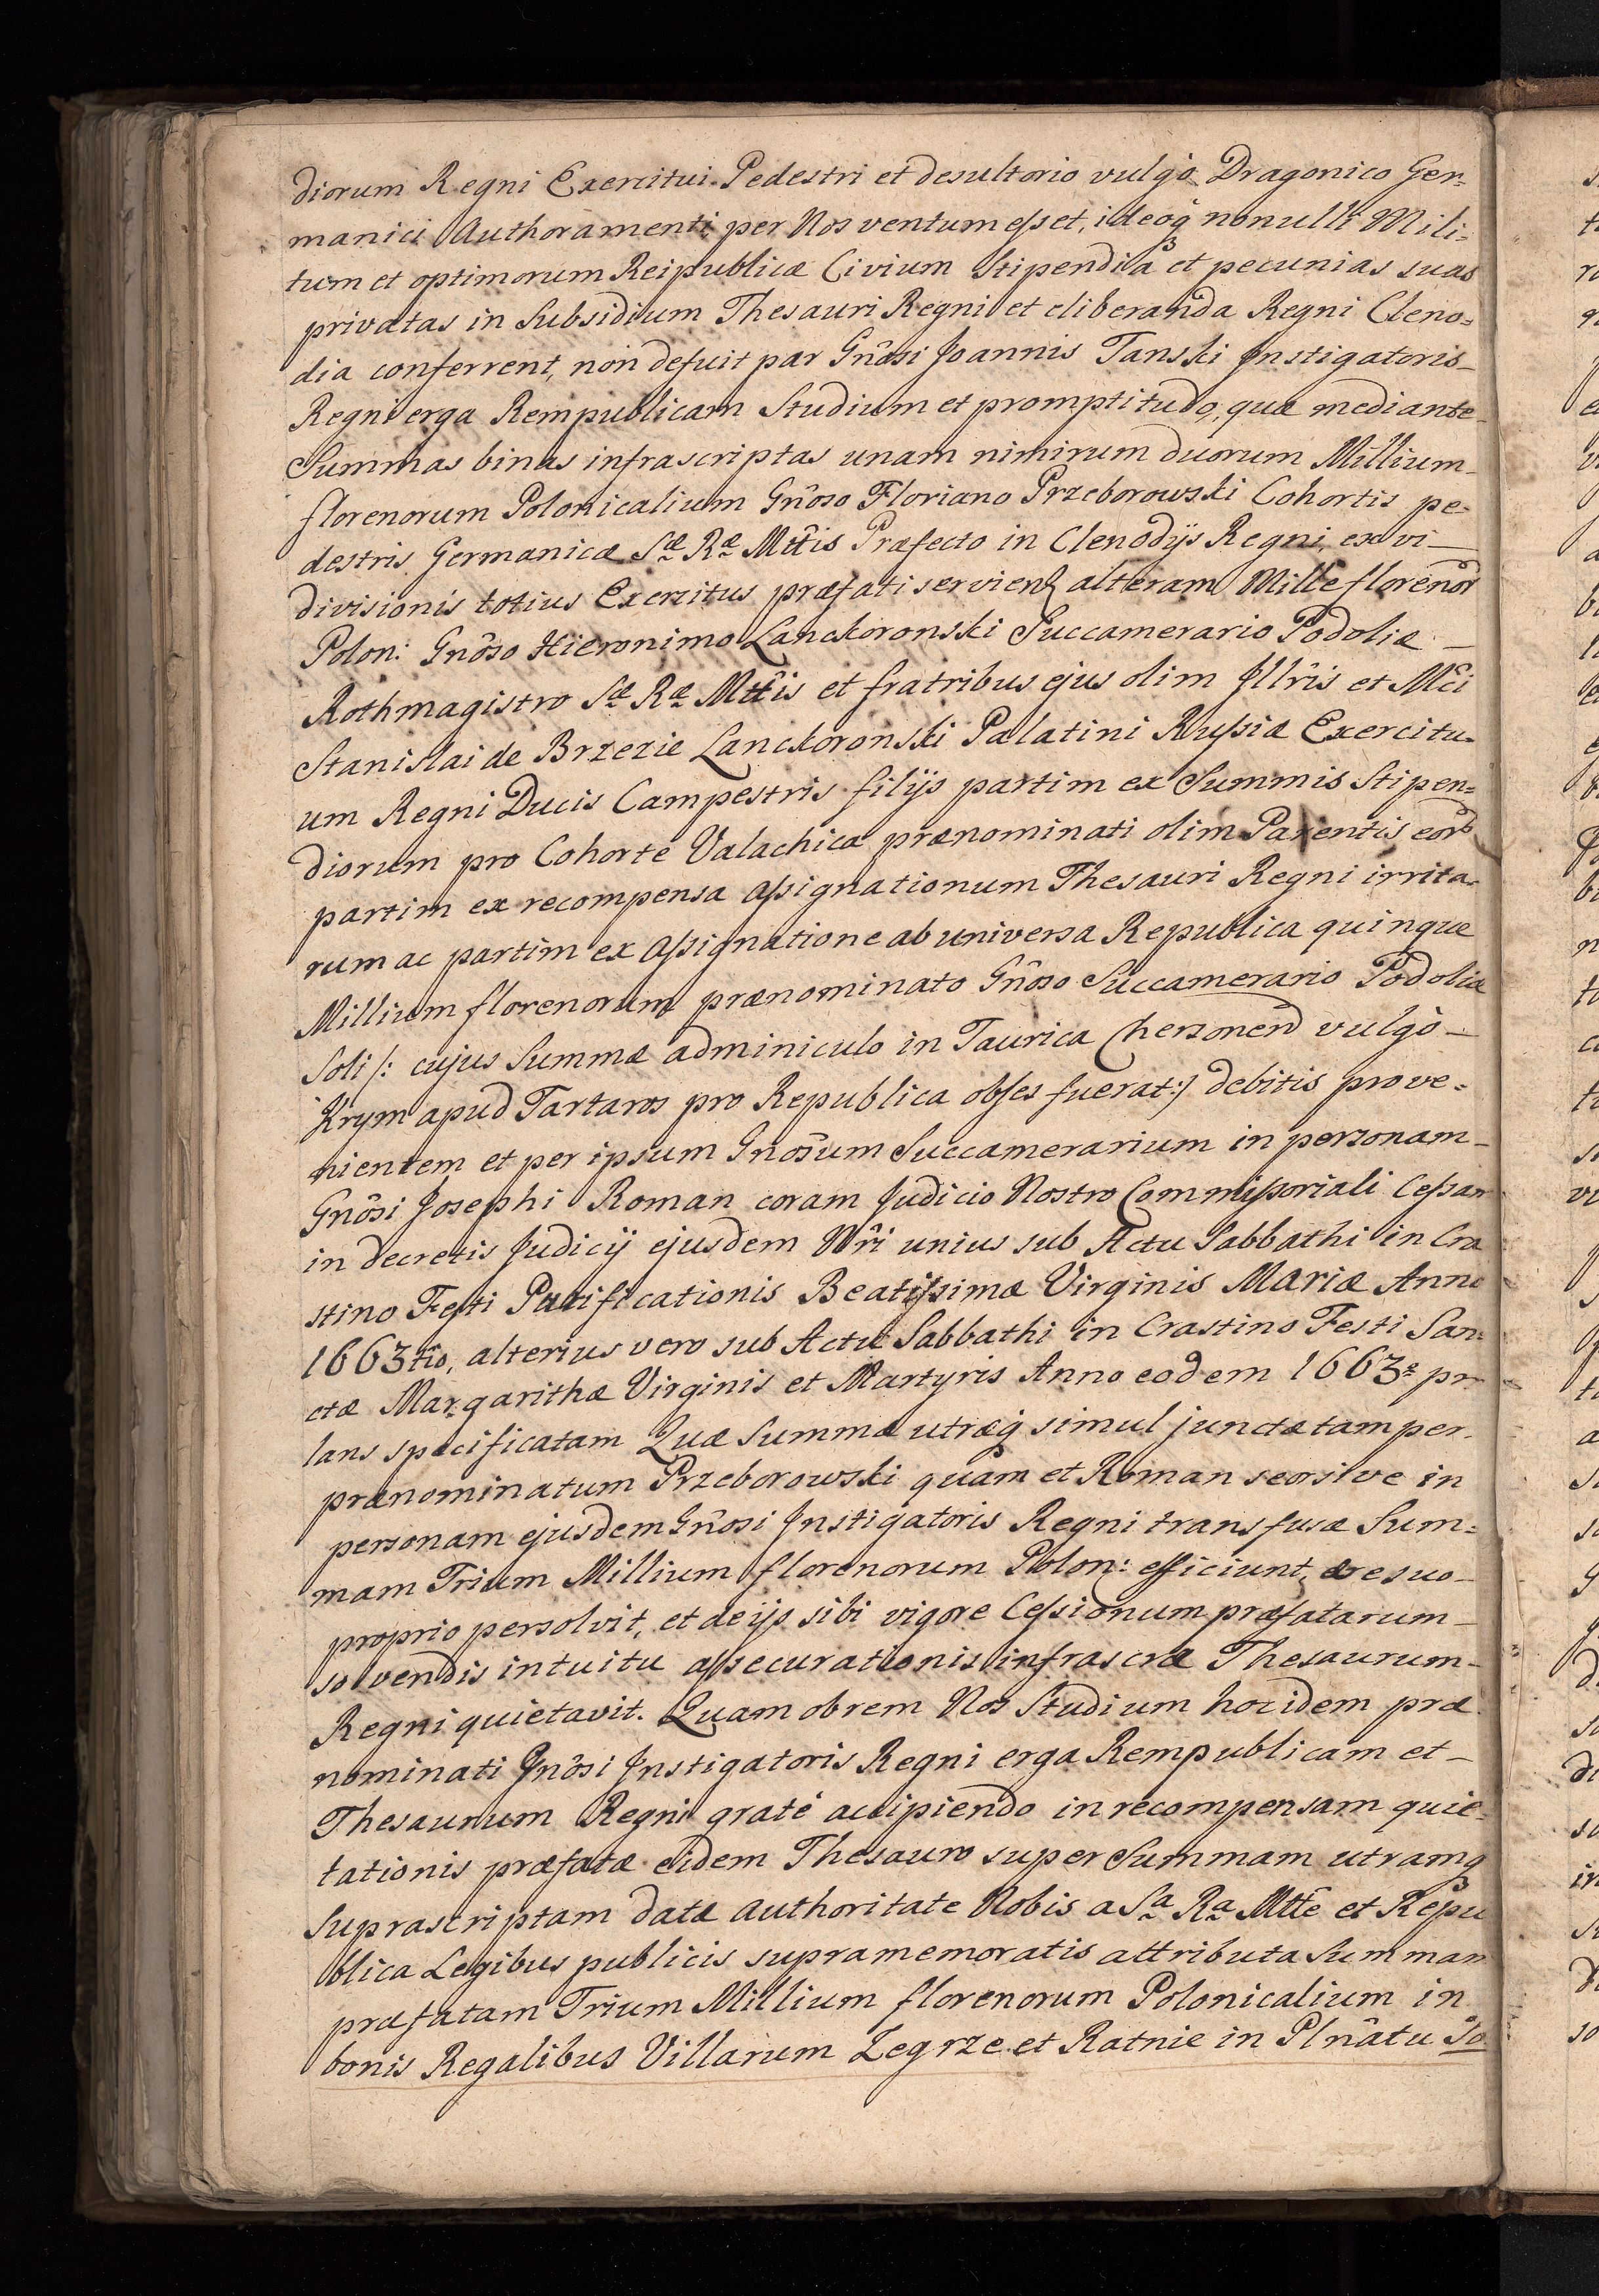 diorum Regni Exercitui Pedestri et desultorio vulgò Dragonico Ger=
manici Authoramenti per Nos ventum esset, ideoq nonulli Mili=
tum et optimorum Reipublicæ Civium Stipendia et pecunias suas
privatas in Subsidium Thesauri Regni et eliberanda Regni Cleno=
dia conferrent, non defuit par Gnôsi Joannis Tanski Instigatoris
Regni erga Rempublicam Studium et promptitudo, quæ mediante
Summas binas infrascriptas unam nimirum duorum Millium
florenorum Polonicalium Gnôso Floriano Przeborowski Cohortis pe-
destris Germanicæ Sæ Ræ Mttis Præfecto in Clenodijs Regni, ex vi
divisionis totius Exercitus præfati servien alteram Mille florenor
Polon: Gnôso Hieronimo Lanckoronski Succamerario Podoliæ
Rothmagistro Sæ Ræ Mttis et fratribus ejus olim Illris et Mci
Stanislai de Brzezie Lanckoronski Palatini Russiæ Exercitu-
um Regni Ducis Campestris filijs partim ex Summis Stipen=
diorum pro Cohorte Valachica prænominati olim Parentis eor
partim ex recompensa assignationum Thesauri Regni irrita-
rum ac partim ex assignatione ab universa Republica quinque
Millium florenorum prænominato Gnôso Succamerario Podoliæ
Soli /: cujus Summæ adminiculo in Taurica Chersonend vulgò
Krym apud Tartaros pro Republica obses fuerat:/ debitis prove-
nientem et per ipsum Gnôsum Succamerarium in personam
Gnôsi Josephi Roman coram Judicio Nostro Commissoriali Cessam
in decretis Judicij ejusdem Nri unius sub Actu Sabbathi in Cra
stino Festi Purificationis Beatissimæ Virginis Mariæ Anno
1663tîo, alterius vero sub Actu Sabbathi in Crastino Festi San=
ctæ Margarithæ Virginis et Martyris Anno eodem 1663 pr
lans specificatam Quæ Summæ utræq simul junctæ tam per
prænominatum Przeborowski quàm et Roman seorsive in
personam ejusdem Gnôsi Instigatoris Regni transfusæ Sum=
mam Trium Millium florenorum Polon: efficiunt, ære suo
proprio persolvit, et de ijs sibi vigore Cessionum præfatarum
solvendis intuitu assecurationis infrascræ Thesaurum
Regni quietavit. Quam obrem Nos Studium hocidem præ
nominati Gnôsi Instigatoris Regni erga Rempublicam et
Thesaurum Regni gratè accipiendo in recompensam quie-
tationis præfatæ eidem Thesauro super Summam utramq
Suprascriptam datæ authoritate Nobis a Sa Ra Mtte et Repu
blica Legibus publicis supramemoratis attributa Summam
præfatam Trium Millium florenorum Polonicalium in
bonis Regalibus Villarum Zegrze et Ratnie in Plnâtu So